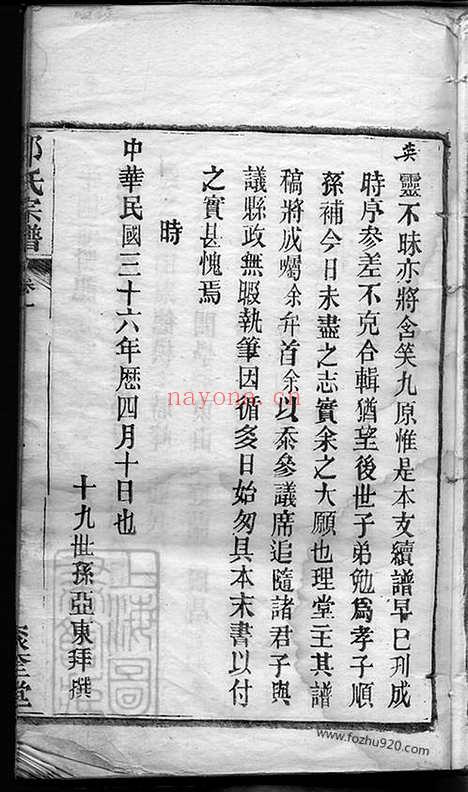 英靈不昧亦將含笑九原惟是本支續譜早已刋成
時序參差不克合輯猶望後世子弟勉爲孝子順
孫補今日未盡之志實余之大願也理堂王其譜
稿將成囑余弁首余以忝參議席追隨諸君子與
議縣政無暇執筆因循多日始匆具本末書以付
之實甚愧焉
時
中華民國三十六年歷四月十日也
十九世孫亞東拜撰
氏宗譜
卷一
堂
nayona.cn
上海圖
www.fozhu920.com